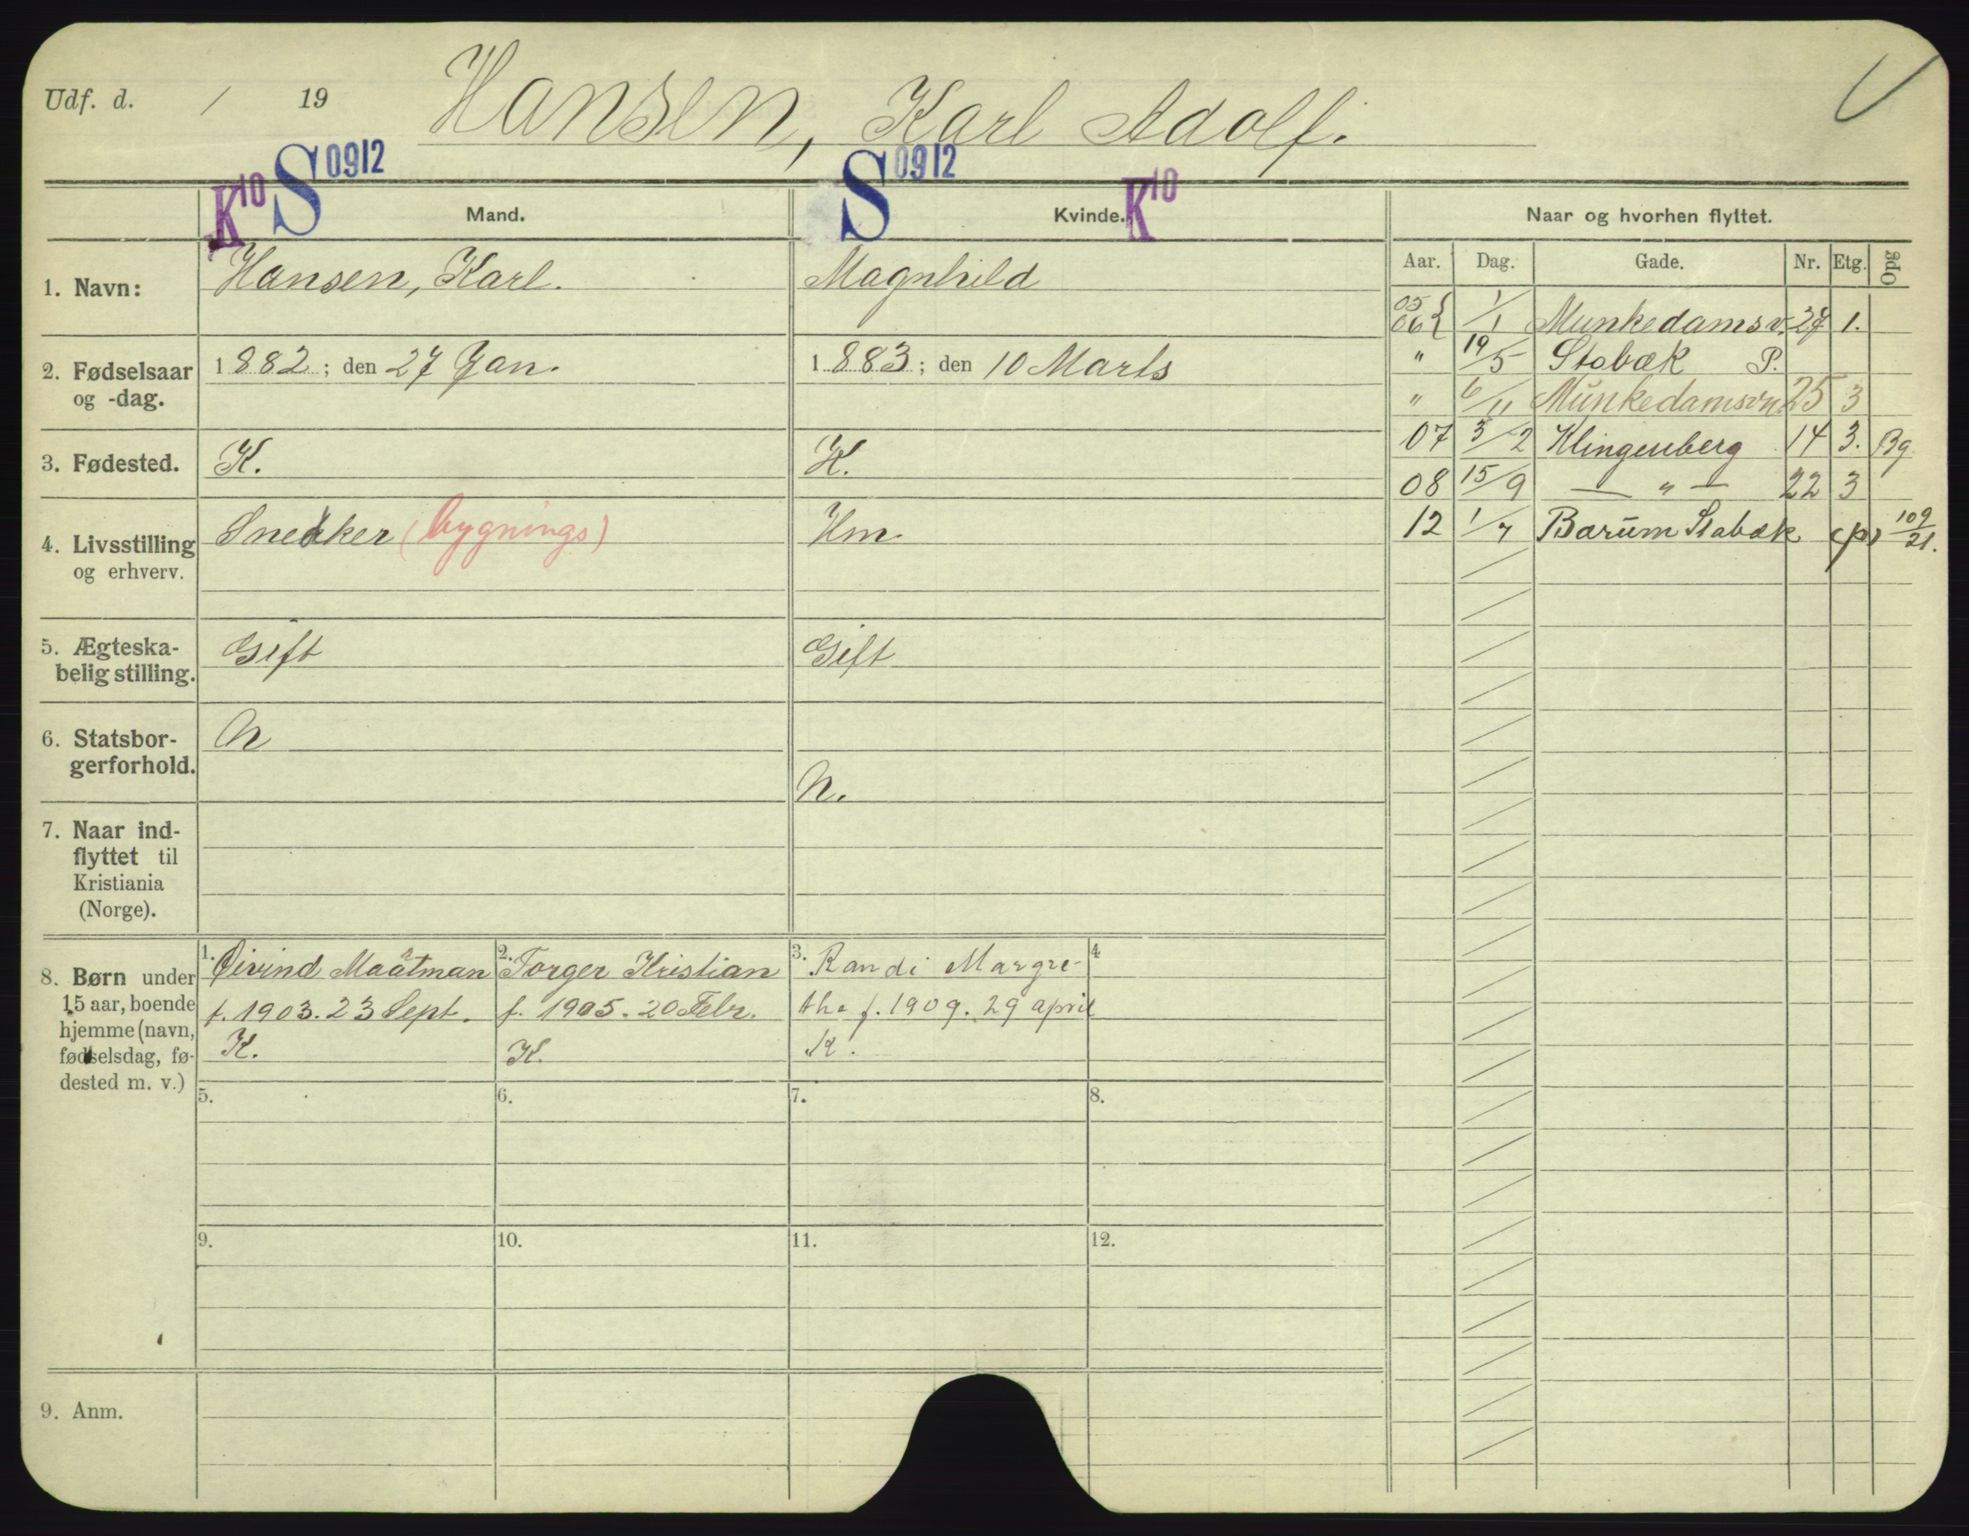 Udf. d. / 19 Hansen, Karl Adolf.
K10 S 0912 S 0912 K10
Mand. Kvinde. Naar og hvorhen flyttet.
Aar. Dag. Gade. Nr. Etg. Opg
1. Navn: Hansen, Karl. Magnhild
05
06 { 1/1 Munkedamsv. 27 1.
2. Fødselsaar 1882; den 27 Jan. 1883; den 10 Marts
og -dag.
" 19/5 Stabæk P.
" 6/11 Munkedamsvn 25 3
3. Fødested. K. K.
07 5/2 Klingenberg 14 3. Bg.
08 15/9 — " — 22 3
4. Livsstilling Snekker (bygnings) Hm
og erhverv.
12 1/7 Barum Stabæk (p) 109/21.
5. Ægteska- Gift Gift
belig stilling.
6. Statsbor- N
gerforhold. N.
7. Naar ind-
flyttet til
Kristiania
(Norge).
8. Børn under
15 aar, boende
hjemme (navn,
fødselsdag, fø-
dested m. v.)
1. Øivind Maatman
f. 1903. 23 Sept.
K.
2. Torger Kristian
f. 1905. 20 Febr.
K.
3. Randi Margre-
the f. 1909. 29 april
K.
4
5. 6. 7. 8.
9. 10. 11. 12.
9. Anm.